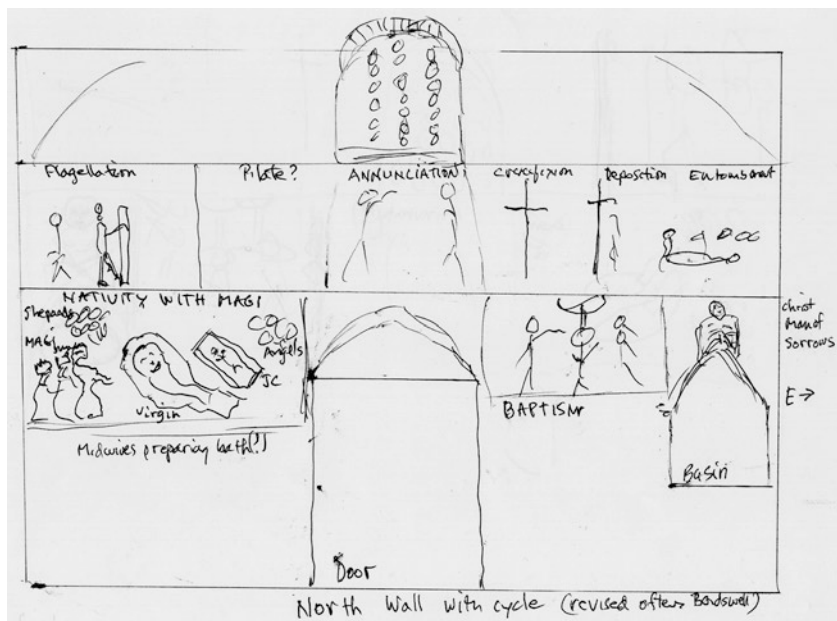 Flagellation
Pilate?
ANNUNCIATION
Crucifixion
Deposition
Entombment
NATIVITY WITH MAGI
Shepards
MAGI
Angels
JC
Virgin
Midwives preparing bath(?)
BAPTISM
christ
Man of
Sorrows
E →
Basin
Door
North Wall with cycle (revised after